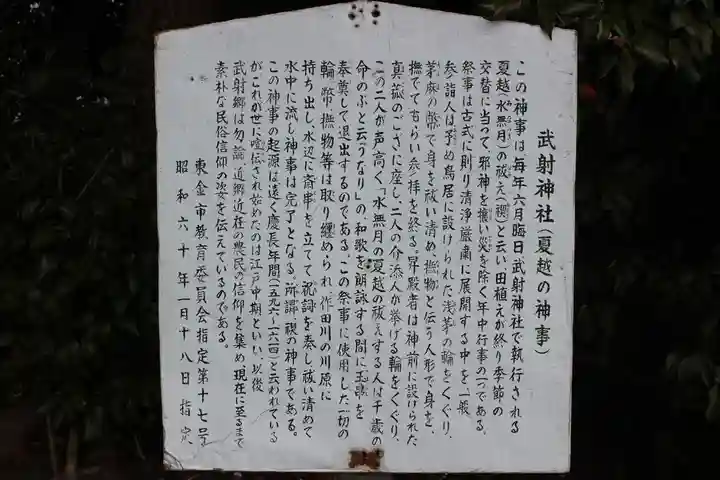 武射神社(夏越の神事)
この神事は毎年六月晦日武射神社で執行される
夏越(水無月)の祓え(禊)と云い、田植えが終り季節の
交替に当って、邪神を攘い災を除く年中行事の一つである。
祭事は古式に則り清浄厳粛に展開する中を、一般
参詣人は予め鳥居に設けられた浅茅の輪をくぐり、
茅麻の幣で身を祓い清め、撫物と伝う人形で身を、
撫でてもらい参拝を終る。昇殿者は神前に設けられた
真菰のござに座し、二人の介添人が挙げる輪をくぐり、
この二人が声高く「水無月の夏越の祓えする人は千歳の
命のぶと云うなり」の、和歌を朗詠する間に玉串を
奉奠して退出するのである。この祭事に使用した一切の
輪、幣、撫物等は取り纏められ、作田川の川原に
持ち出し、水辺に斎串を立てて祝詞を奏し祓い清めて
水中に流し神事は完了となる。所謂、禊の神事である。
この神事の起源は遠く慶長年間(一五九六〜一六一四)と云われている
がこれが世に喧伝され始めたのは江戸中期といい、以後
武射郷は勿論、近郷近在の農民の信仰を集め現在に至るまで
素朴な民俗信仰の姿を伝えているのである。
東金市教育委員会指定第十七号
昭和六十年一月十八日指定